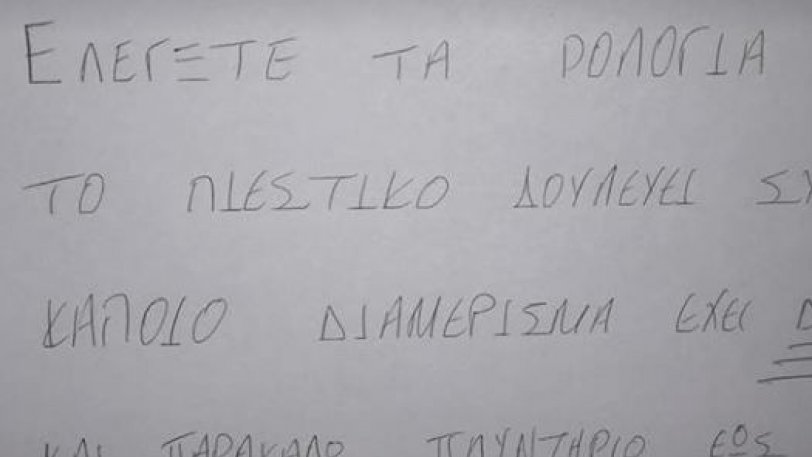 ΕΛΕΓΞΤΕ ΤΑ ΡΟΛΟΓΙΑ
ΤΟ ΠΙΕΣΤΙΚΟ ΔΟΥΛΕΥΕΙ
ΚΑΠΟΙΟ ΔΙΑΜΕΡΙΣΜΑ ΕΧΕΙ
ΚΑΙ ΠΑΡΑΚΑΛΟ ΠΛΥΝΤΗΡΙΟ ΕΟΣ